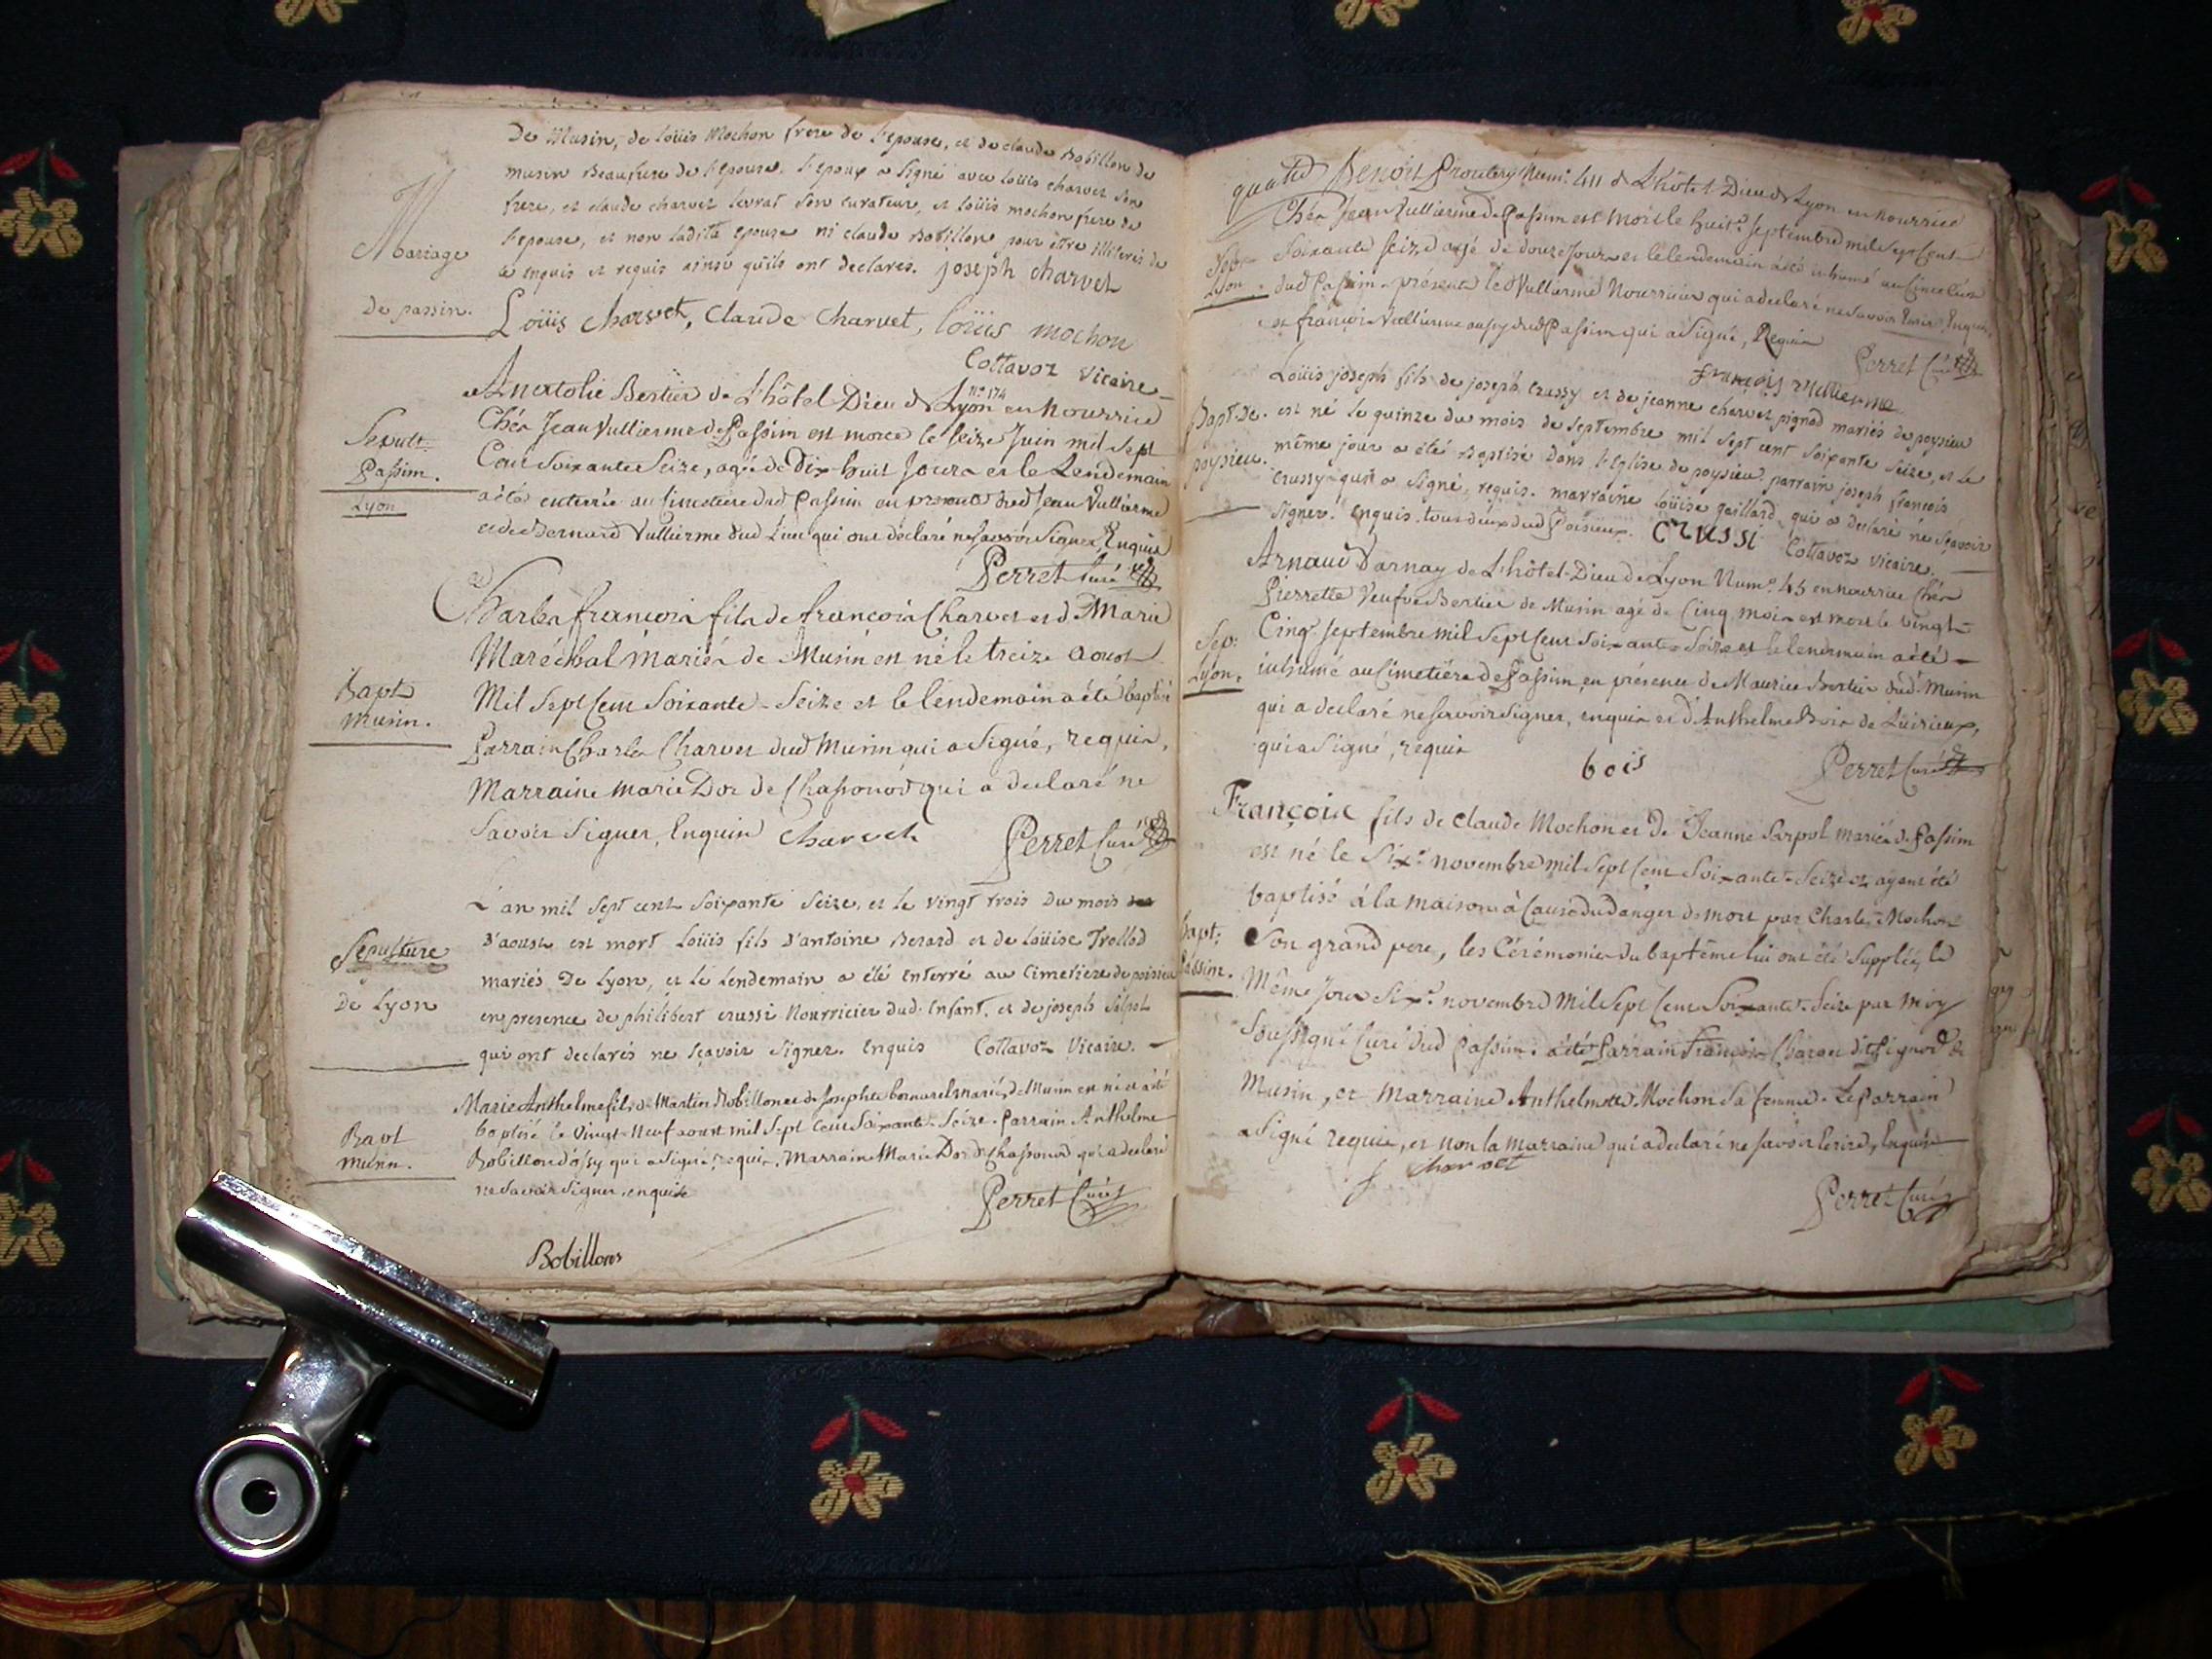 De Musin, de loüis Mochon frere de l'epouse, et de claude Bobillon de
musin Beaufrere de l'epouse. l'epoux a signé avec loüis charvet son
frere, et claude charvet levrat son curateur, et loüis mochon frere de
l'epouse, et non ladite epouse ni claude Bobillon pour être illiterés de
ce enquis et requis ainsi qu'ils ont declarés. joseph charvet
Mariage
de passin.
Loüis charvet, Claude Charvet, loüis mochon
Cottavoz vicaire
Anatolie Bertier de L'hôtel Dieu de Lyon n.° 174 en nourrice
Chés Jean Vullierme de Passim est morte le seize Juin mil sept
Cent soixante Seize, agée de Dix huit Jours et le Lendemain
a été enterrée au cimetiere dud Passim en presence dud Jean Vullierme
et de Bernard Vullierme dud Lieu qui ont déclaré ne savoir signer Enquis
Sepult.
Passim.
Lyon
Perret Curé
Charles françois fils de françois Charvet et de Marie
Maréchal mariés de Musin est né le treize aoust
Mil Sept Cent Soixante-Seize et le lendemain a été baptisé
Parrain Charles Charvet dud Musin qui a signé, requis,
Marraine Marie Dor de Chassonod qui a declaré ne
savoir signer, Enquis charvet
Perret Curé
Bapt
musin.
L'an mil sept cent soixante seize, et le vingt trois du mois
d'aoust est mort loüis fils d'antoine Berard et de loüise Trollod
mariés De lyon, et le lendemain a été enterré au cimetiere de poisieu
en presence de philibert crussi nourricier dud. enfant. et de joseph
qui ont declarés ne sçavoir signer. enquis Cottavoz Vicaire.
Sepulture
De Lyon
Marie Anthelme fils de Martin Bobillon et de Josephte mariés de Musin est né et a été
baptisé le vingt-neuf aoust mil sept cent soixante-Seize. Parrain Anthelme
Bobillon d'ossy qui a signé, requis, Marraine Marie Dor de Chassonod qui a declaré
ne savoir signer, enquise
Bapt
musin.
Perret Curé
Bobillons
Benoit num.° 411 de L'hôtel-Dieu de Lyon en nourrice
Chés Jean Vullierme de Passim est mort le huit.e septembre mil sept cent
soixante seize agé de douze jours et le lendemain a été inhumé au Cimetiere
dud Passim. présent led Vullierme Nourricier qui a declaré ne savoir Enquis,
et françois Vullierme aussy dud Passim qui a signé, Requis
Sep.
Lyon.
Perret Curé
françois Vullierme
Loüis joseph fils de joseph crussy et de jeanne charvet pignod mariés de poysieu
est né le quinze du mois de septembre mil sept cent soixante seize, et le
même jour a été Baptisé dans l'eglise de poysieu. parrain joseph francois
crussy qui a signé, requis. marraine loüise gaillard qui a declaré ne sçavoir
signer. enquis. tous deux dud Poisieux. crussi Cottavoz vicaire.
Bapt. De.
poysieu.
Arnaud Varnay de L'hôtel-Dieu de Lyon Num.° 45 en nourrice Chés
Pierrette Veufve Bertier de Musin agé de Cinq mois est mort le vingt
Cinq.e septembre mil sept cent soixante-Seize et le lendemain a été
inhumé au Cimetière de Passim en présence de Maurice Bertier dud. Musin
qui a declaré ne sçavoir signer, enquis et d'Anthelme Bois de Luirieux,
qui a signé, requis
Sep:
Lyon.
bois
Perret Curé
François fils de Claude Mochon et de Jeanne mariés de Passim
est né le six.e novembre mil sept cent soixante-Seize et ayant été
baptisé à la maison à Cause du danger de mort par Charles Mochon
son grand pere, les Cérémonies du baptême lui ont été supplées le
même jour six.e novembre mil sept cent soixante-Seize par moy
soussigné Curé dud Passim. a été Parrain François Charvet dit Pignod de
Musin, et Marraine Anthelmette Mochon sa femme. Le Parrain
a signé requis, et non la marraine qui a declaré ne savoir, Enquise
Bapt:
Passim.
f charvet
Perret Curé